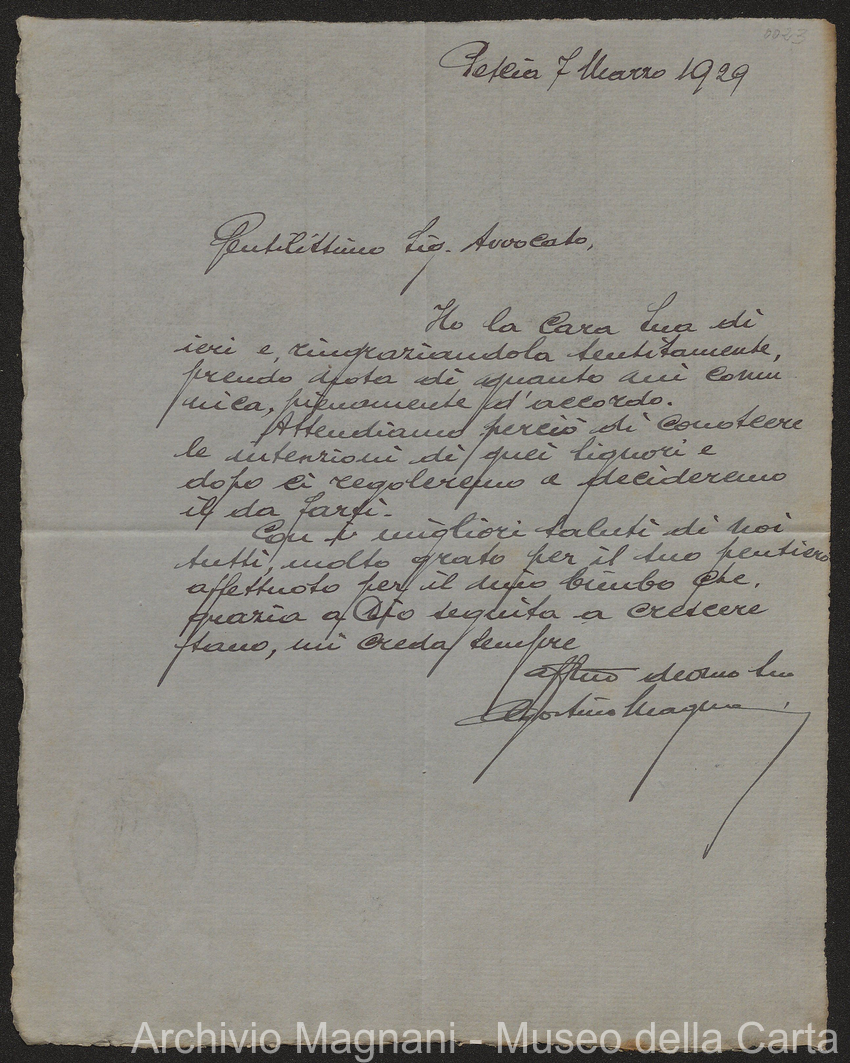 0023
Pescia 7 Marzo 1929
Gentilissimo Sig. Avvocato,
Ho la Cara Sua di
ieri e, ringraziandola sentitamente,
prendo nota di quanto mi comu
nica, pienamente d'accordo.
Attendiamo perciò di conoscere
le intenzioni di quei signori e
dopo ci regoleremo e decideremo
il da farsi.
Con i migliori saluti di noi
tutti, molto grato per il suo pensiero
affettuoso per il mio bimbo che,
grazia a Dio seguita a crescere
sano, mi creda sempre
affmo devmo Suo
Agostino Magnani
Archivio Magnani - Museo della Carta